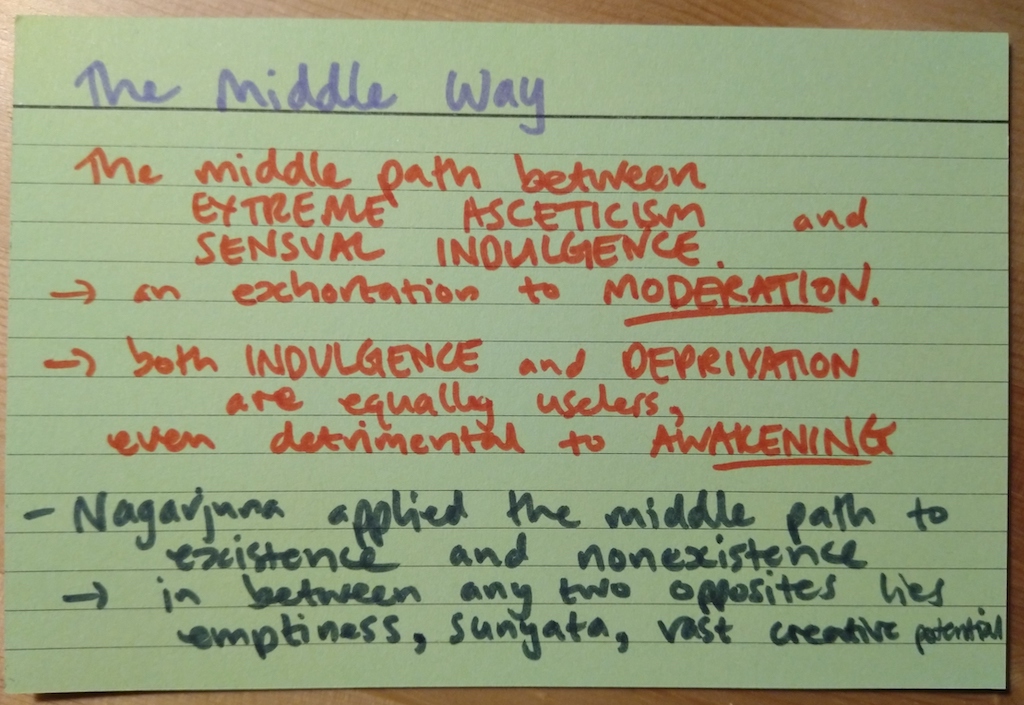 The Middle Way
The middle path between
EXTREME ASCETICISM and
SENSUAL INDULGENCE.
→ an exhortation to MODERATION.
→ both INDULGENCE and DEPRIVATION
are equally useless,
even detrimental to AWAKENING
- Nagarjuna applied the middle path to
existence and nonexistence
→ in between any two opposites lies
emptiness, sunyata, vast creative potential